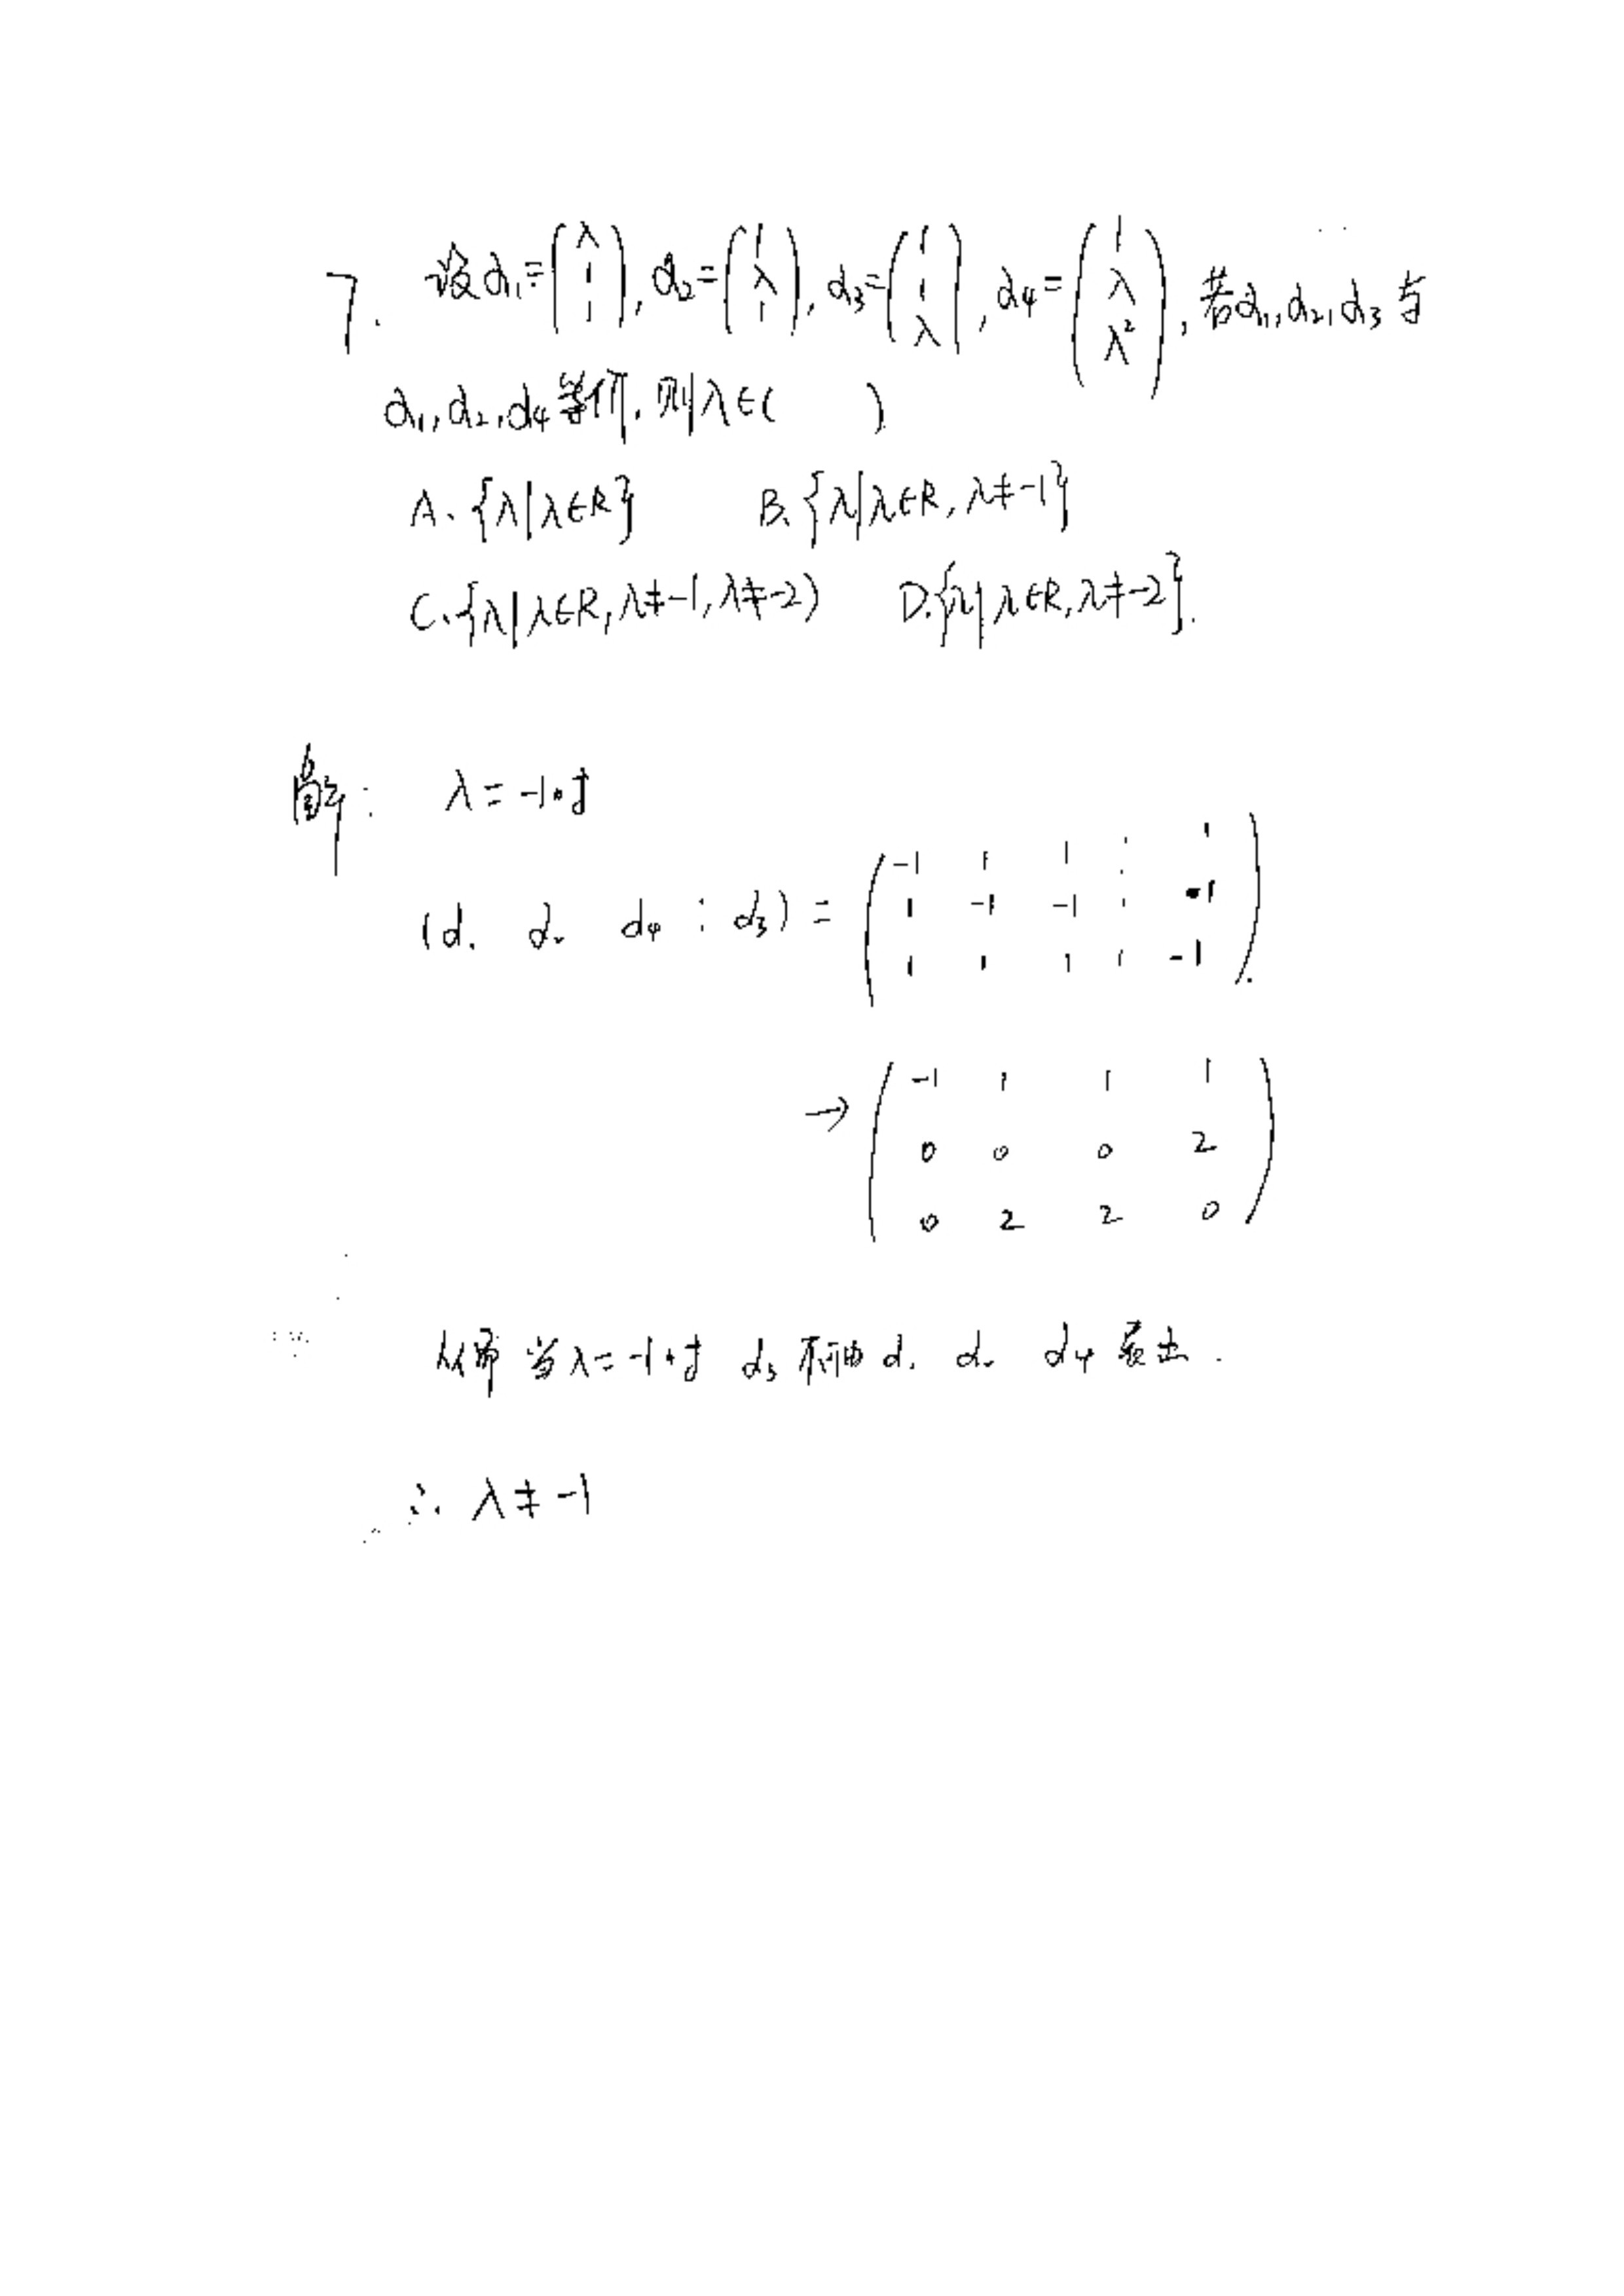 7. 设α₁=(λ 1 1), α₂=(1 λ 1), α₃=(1 1 λ), α₄=(1 λ λ²), 若α₁,α₂,α₃与
α₁,α₂,α₄等价, 则λ∈( )
A、{λ|λ∈R} B、{λ|λ∈R, λ≠-1}
C、{λ|λ∈R, λ≠-1, λ≠-2) D.{λ|λ∈R, λ≠-2}.
解: λ=-1时
(α₁ α₂ α₄ ⋮ α₃) =
-1 1 1 ⋮ 1
1 -1 -1 ⋮ 1
1 1 1 ⋮ -1
→
-1 1 1 1
0 0 0 2
0 2 2 0
从而 当λ=-1时 α₃不可由α₁ α₂ α₄表出.
∴ λ≠-1